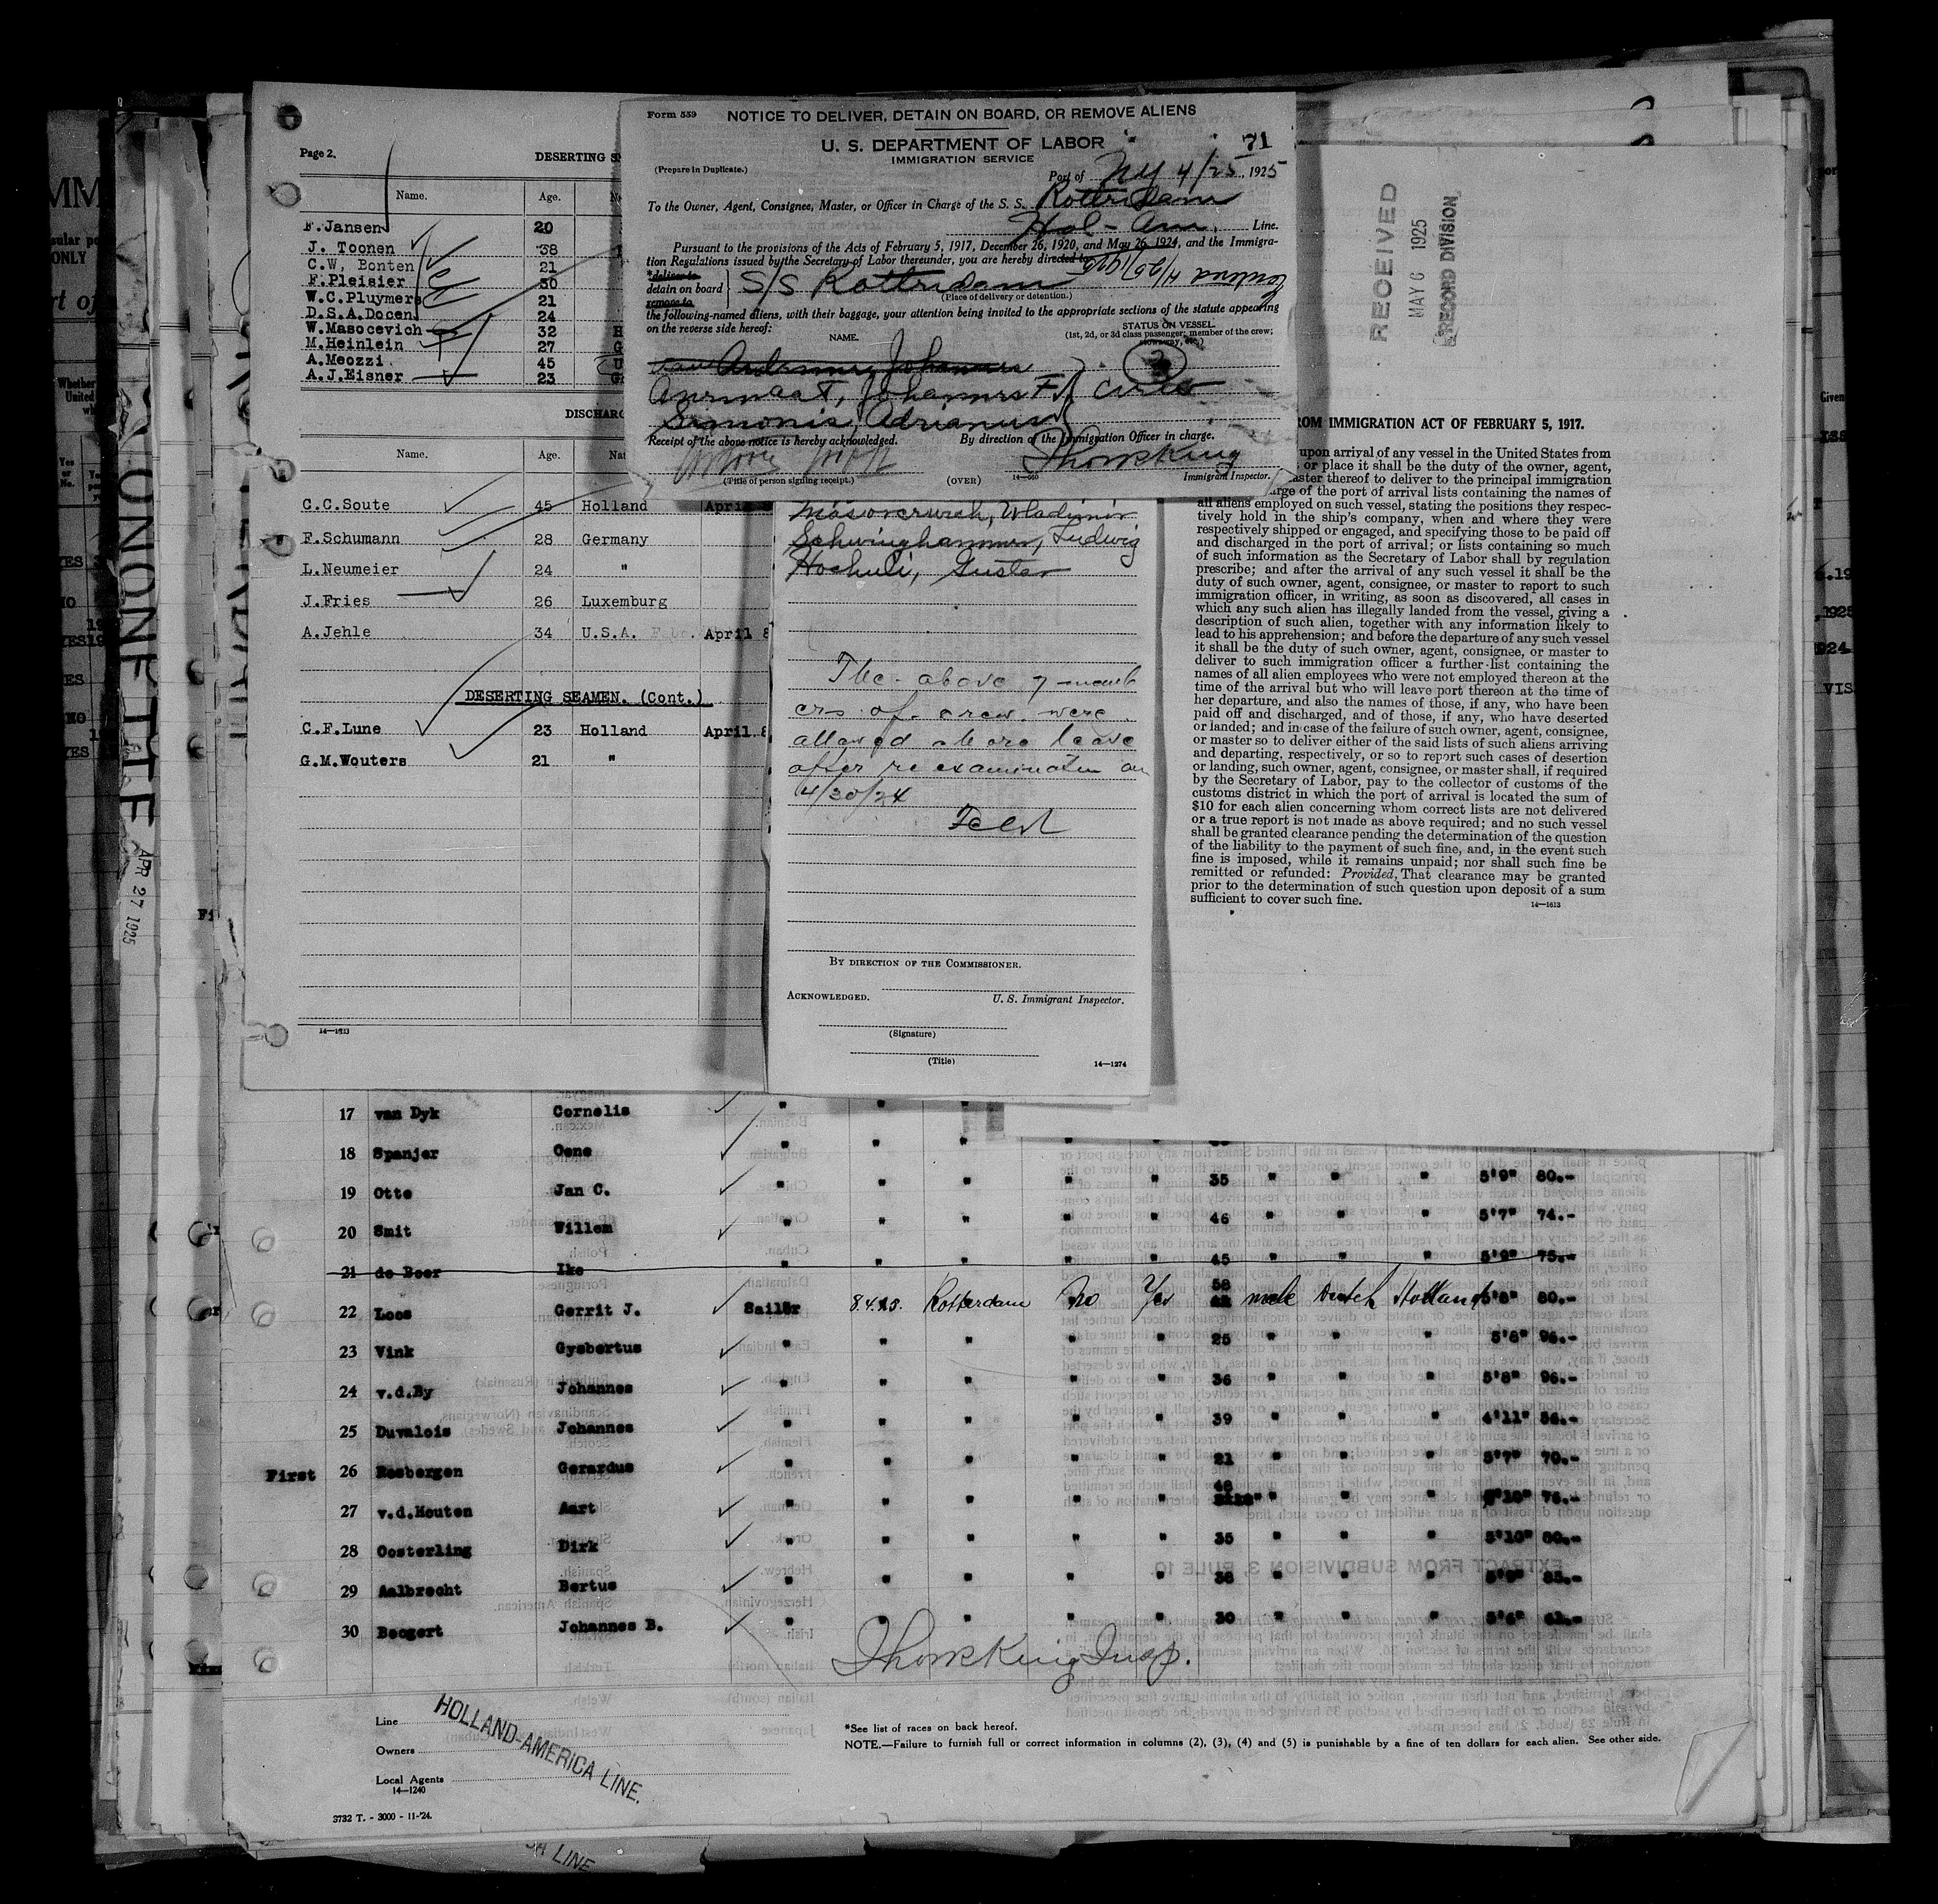 Form 559 NOTICE TO DELIVER, DETAIN ON BOARD, OR REMOVE ALIENS
U. S. DEPARTMENT OF LABOR
IMMIGRATION SERVICE
71
(Prepare in Duplicate.)
Port of NY 4/25, 1925
To the Owner, Agent, Consignee, Master, or Officer in Charge of the S. S. Rotterdam
Hol-Am. Line.
Pursuant to the provisions of the Acts of February 5, 1917, December 26, 1920, and May 26, 1924, and the Immigra-
tion Regulations issued by the Secretary of Labor thereunder, you are hereby directed to
*deliver to
detain on board S/S Rotterdam
remove to
(Place of delivery or detention.)
the following-named aliens, with their baggage, your attention being invited to the appropriate sections of the statute appearing
on the reverse side hereof:
STATUS ON VESSEL
(1st, 2d, or 3d class passenger; member of the crew;
stowaway, etc.)
NAME.
2
Johannes F. crew
Simonis, Adrianus
Receipt of the above notice is hereby acknowledged. By direction of the Immigration Officer in charge.
Thos King
(Title of person signing receipt.) (OVER) 14—960 Immigrant Inspector.
Page 2. DESERTING
Name. Age.
F.Jansen 20
J. Toonen 38
C.W, Bonten 21
F.Pleisier 30
W.C.Pluymers 21
D.S.A.Docen 24
W.Masocevich 32 H
M.Heinlein 27 G
A.Meozzi 45 U
A.J.Eisner 23 G
DISCHARG
Name. Age. Nat
C.C.Soute 45 Holland April 8
F.Schumann 28 Germany
L.Neumeier 24 "
J.Fries 26 Luxemburg
A.Jehle 34 U.S.A. April 8
DESERTING SEAMEN. (Cont.)
C.F.Lune 23 Holland April 8
G.M.Wouters 21 "
14—1213
Wladimir
Schwinghammer, Ludwig
Hochuli, Gustav
The above 7 memb
ers of crew were
allowed shore leave
after re examination on
4/30/24
BY DIRECTION OF THE COMMISSIONER.
ACKNOWLEDGED. U. S. Immigrant Inspector.
(Signature)
(Title)
14—1274
RECEIVED
MAY 6 1925
RECORD DIVISION
ROM IMMIGRATION ACT OF FEBRUARY 5, 1917.
upon arrival of any vessel in the United States from
or place it shall be the duty of the owner, agent,
aster thereof to deliver to the principal immigration
rge of the port of arrival lists containing the names of
all aliens employed on such vessel, stating the positions they respec-
tively hold in the ship's company, when and where they were
respectively shipped or engaged, and specifying those to be paid off
and discharged in the port of arrival; or lists containing so much
of such information as the Secretary of Labor shall by regulation
prescribe; and after the arrival of any such vessel it shall be the
duty of such owner, agent, consignee, or master to report to such
immigration officer, in writing, as soon as discovered, all cases in
which any such alien has illegally landed from the vessel, giving a
description of such alien, together with any information likely to
lead to his apprehension; and before the departure of any such vessel
it shall be the duty of such owner, agent, consignee, or master to
deliver to such immigration officer a further list containing the
names of all alien employees who were not employed thereon at the
time of the arrival but who will leave port thereon at the time of
her departure, and also the names of those, if any, who have been
paid off and discharged, and of those, if any, who have deserted
or landed; and in case of the failure of such owner, agent, consignee,
or master so to deliver either of the said lists of such aliens arriving
and departing, respectively, or so to report such cases of desertion
or landing, such owner, agent, consignee, or master shall, if required
by the Secretary of Labor, pay to the collector of customs of the
customs district in which the port of arrival is located the sum of
$10 for each alien concerning whom correct lists are not delivered
or a true report is not made as above required; and no such vessel
shall be granted clearance pending the determination of the question
of the liability to the payment of such fine, and, in the event such
fine is imposed, while it remains unpaid; nor shall such fine be
remitted or refunded: Provided, That clearance may be granted
prior to the determination of such question upon deposit of a sum
sufficient to cover such fine.
14—1613
APR 27 1925
17 van Dyk Cornelis " " "
18 Spanjer Oene " " " " "
19 Otto Jan C. " " " " " 35 " " " 5'9" 80.-
20 Smit Willem " " " " " 46 " " " 5'7" 74.-
21 de Boer Ike " " " " " 45 " " " 5'9" 75.-
22 Loos Gerrit J. Sailor 8.4.25. Rotterdam No Yes 58 male Dutch Holland 5'8" 80.-
23 Vink Gysbertus " " " " " 25 " " " 5'8" 96.-
24 v.d.By Johannes " " " " " 36 " " " 5'8" 96.-
25 Duvalois Johannes " " " " " 39 " " " 4'11" 56.-
First 26 Rosbergen Gerardus " " " " " 21 " " " 5'7" 70.-
27 v.d.Houten Aart " " " " " 48 " " " 5'10" 76.-
28 Oosterling Dirk " " " " " 35 " " " 5'10" 80.-
29 Aalbrecht Bertus " " " " " 38 " " " 5'9" 85.-
30 Boogert Johannes B. " " " " " 30 " " " 5'6" 62.-
Thos King Insp.
Line
HOLLAND-AMERICA LINE.
Owners
Local Agents
14—1240
*See list of races on back hereof.
NOTE.—Failure to furnish full or correct information in columns (2), (3), (4) and (5) is punishable by a fine of ten dollars for each alien. See other side.
3732 T. - 3000 - 11-'24.
LINE